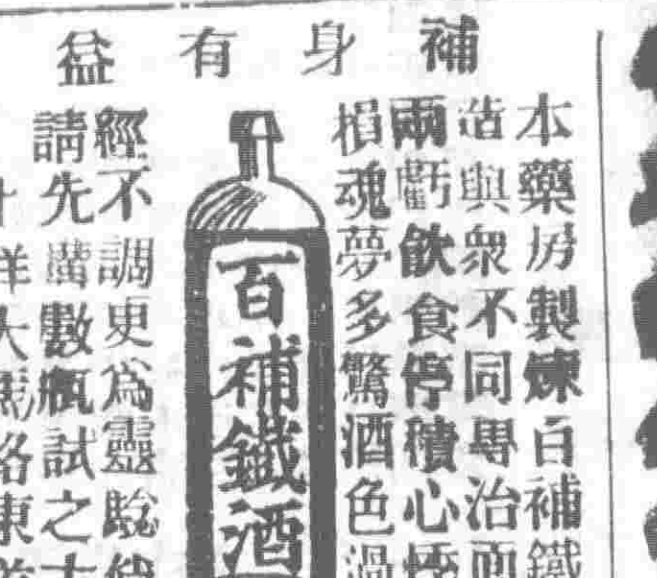 補身有益
本藥房製煉百補鐵
造與衆不同專治面
兩虧飲食停積心
損魂夢多驚酒色過
百補鐵酒
經不調更為靈驗
請先嘗數瓶試之
洋大馬路東